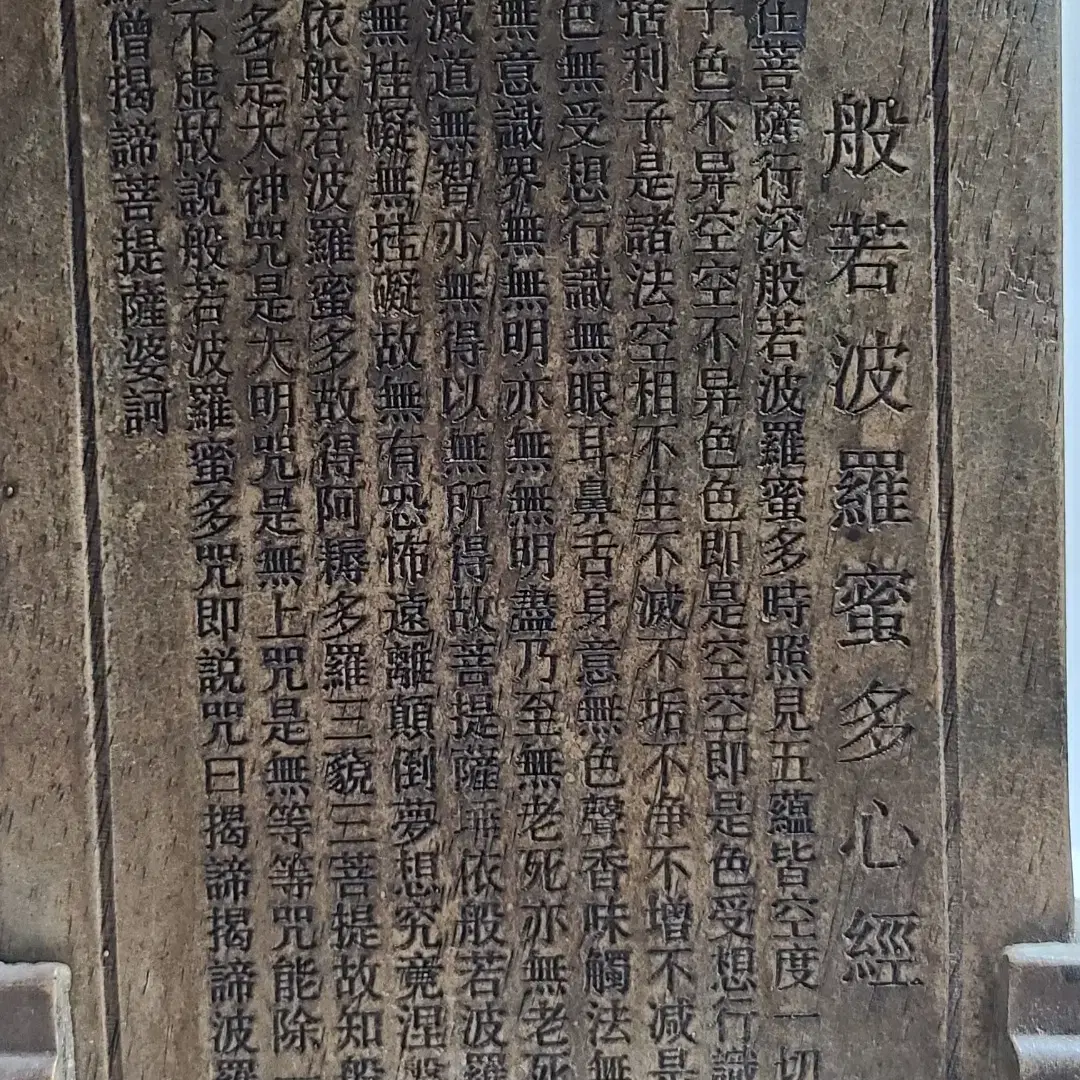 般若波羅蜜多心經
在菩薩行深般若波羅蜜多時照見五蘊皆空度一切
子色不异空空不异色色即是空空即是色受想行識
利子是諸法空相不生不滅不垢不净不增不减是
色無受想行識無眼耳鼻舌身意無色聲香味觸法無
無意識界無無明亦無無明盡乃至無老死亦無老死
滅道無智亦無得以無所得故菩提薩埵依般若波羅
無挂礙無挂礙故無有恐怖遠離顛倒夢想究竟涅槃
依般若波羅蜜多故得阿耨多羅三藐三菩提故知般
多是大神咒是大明咒是無上咒是無等等咒能除一
不虛故説般若波羅蜜多咒即説咒曰揭諦揭諦波羅
僧揭諦菩提薩婆訶